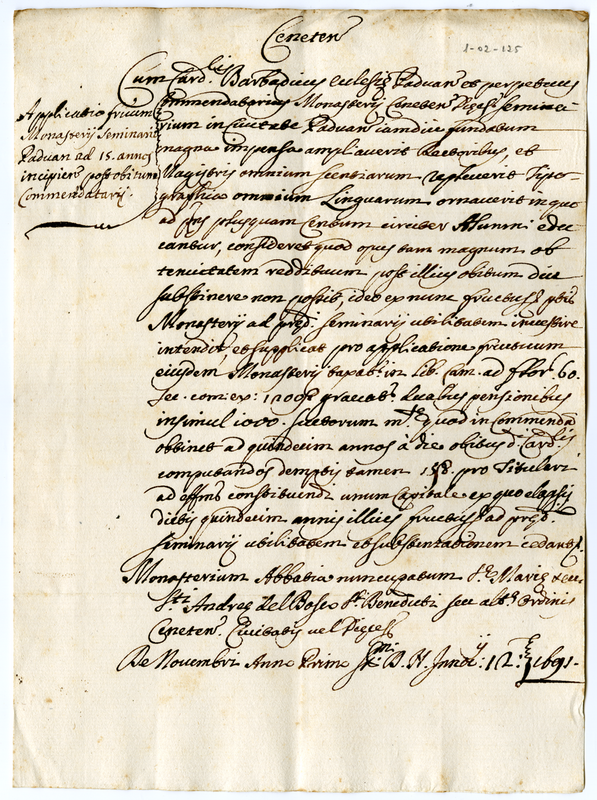 Ceneten
1-02-125
Cum Card:lis Barbadicus Ecclesiæ Paduan et perpetuus
Commendatarius Monasterij Ceneten Dioeces Semina-
rium in Civitate Paduan iamdiu fundatum
magna impensa ampliaverit Rectoribus, et
Magistris omnium scientiarum repleverit Typo-
graphia omnium Linguarum ornaverit in quo
ad pns plusquam Centum circiter Alumni edu
cantur, consideret quod opus tam magnum ob
tenuitatem reddituum post illius obitum diu
substinere non possit, ideo ex nunc fructus pti
Monasterij ad pred. seminarij utilitatem
intendit et supplicat pro applicatione fructuum
eiusdem Monasterij taxat in lib. Cam. ad flor. 60.
sec. com. ex: gravat. duabus pensionibus
insimul 1000. scutorum mtæ quod in Commenda
obtinet ad quindecim annos à die obitus d. Card:lis
computandos demptis tamen pro Titulari
ad effms constituendi unum Capitale ex quo elapsis
dictis quindecim annis illius fructus ad pred.
seminarij utilitatem et substentationem cedant.
Monasterium Abbatia nuncupatum S. Mariæ
Sti Andreæ del Bosco S.ti Benedicti seu alt. Ordinis
Ceneten. Civitatis vel Dioeces
De Novembri Anno Primo D. N. Innoc: 12. 1691.
Applicatio fructuum
Monasterij Seminario
Paduan ad 15. annos
incipien post obitum
Commendatarij.